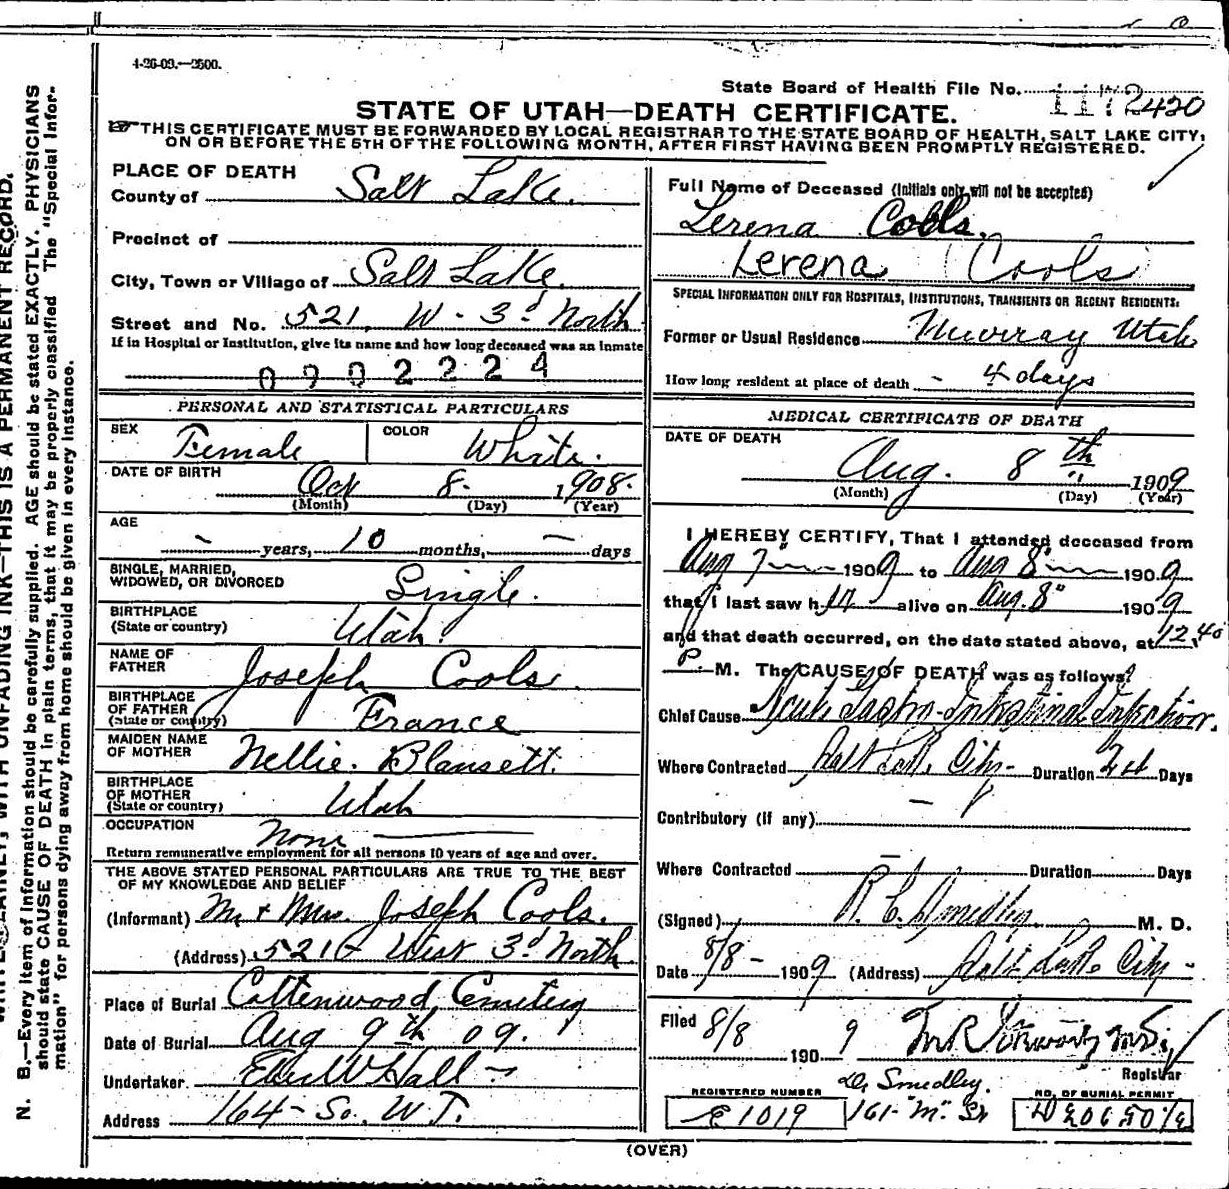 4-26-09.—2500.
State Board of Health File No. 1172 420
STATE OF UTAH—DEATH CERTIFICATE.
THIS CERTIFICATE MUST BE FORWARDED BY LOCAL REGISTRAR TO THE STATE BOARD OF HEALTH, SALT LAKE CITY,
ON OR BEFORE THE 5TH OF THE FOLLOWING MONTH, AFTER FIRST HAVING BEEN PROMPTLY REGISTERED.
PLACE OF DEATH
County of Salt Lake.
Precinct of
City, Town or Village of Salt Lake.
Street and No. 521, W. 3d North
If in Hospital or Institution, give its name and how long deceased was an inmate
0902224
PERSONAL AND STATISTICAL PARTICULARS
SEX Female COLOR White.
DATE OF BIRTH Oct 8. 1908.
(Month) (Day) (Year)
AGE
- years, 10 months, — days
SINGLE, MARRIED,
WIDOWED, OR DIVORCED Single.
BIRTHPLACE
(State or country) Utah
NAME OF
FATHER Joseph Cools.
BIRTHPLACE
OF FATHER
(State or country) France
MAIDEN NAME
OF MOTHER Nellie. Blansett.
BIRTHPLACE
OF MOTHER
(State or country) Utah
OCCUPATION None
Return remunerative employment for all persons 10 years of age and over.
THE ABOVE STATED PERSONAL PARTICULARS ARE TRUE TO THE BEST
OF MY KNOWLEDGE AND BELIEF
(Informant) Mr + Mrs. Joseph Cools.
(Address) 521 West 3d North
Place of Burial Cottenwood Cemetery
Date of Burial Aug 9th 09.
Undertaker. Eber W Hall
Address 164 - So. W.T.
Full Name of Deceased (Initials only will not be accepted)
Lerena Cools.
Lerena Cools
SPECIAL INFORMATION ONLY FOR HOSPITALS, INSTITUTIONS, TRANSIENTS OR RECENT RESIDENTS.
Former or Usual Residence Murray Utah
How long resident at place of death - 4 days
MEDICAL CERTIFICATE OF DEATH
DATE OF DEATH
Aug. 8th 1909
(Month) (Day) (Year)
I HEREBY CERTIFY, That I attended deceased from
Aug 7" 1909 to Aug 8" 1909
that I last saw h alive on Aug. 8" 1909
and that death occurred, on the date stated above, at 12.40
P M. The CAUSE OF DEATH was as follows:
Chief Cause Acute Gastro-Intestinal Infection.
Where Contracted Salt Lake City- Duration Days
Contributory (if any) -
Where Contracted — Duration Days
(Signed) R. C. Smedley M. D.
Date 8/8 - 1909 (Address) Salt Lake City -
Filed 8/8 1909
Registrar
Dr Smedley.
161 "M" St
REGISTERED NUMBER
1019
NO. OF BURIAL PERMIT
(OVER)
N. B.—Every item of information should be carefully supplied. AGE should be stated EXACTLY. PHYSICIANS
should state CAUSE OF DEATH in plain terms, that it may be properly classified. The "Special Infor-
mation" for persons dying away from home should be given in every instance.
WITH UNFADING INK—THIS IS A PERMANENT RECORD.